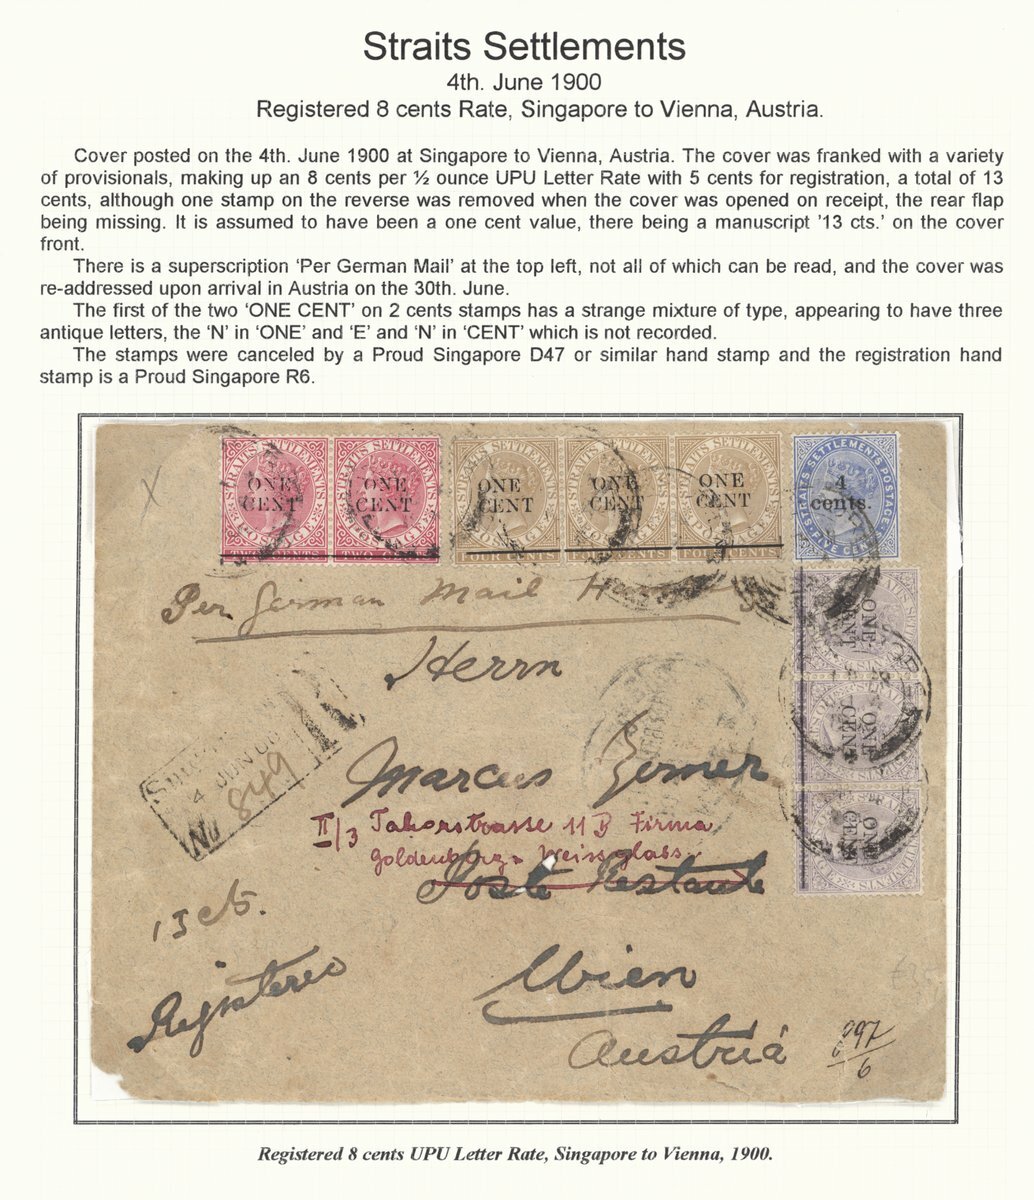 Straits Settlements
4th. June 1900
Registered 8 cents Rate, Singapore to Vienna, Austria.
Cover posted on the 4th. June 1900 at Singapore to Vienna, Austria. The cover was franked with a variety
of provisionals, making up an 8 cents per ½ ounce UPU Letter Rate with 5 cents for registration, a total of 13
cents, although one stamp on the reverse was removed when the cover was opened on receipt, the rear flap
being missing. It is assumed to have been a one cent value, there being a manuscript '13 cts.' on the cover
front.
There is a superscription ‘Per German Mail’ at the top left, not all of which can be read, and the cover was
re-addressed upon arrival in Austria on the 30th. June.
The first of the two ‘ONE CENT’ on 2 cents stamps has a strange mixture of type, appearing to have three
antique letters, the ‘N’ in ‘ONE’ and ‘E’ and ‘N’ in ‘CENT’ which is not recorded.
The stamps were canceled by a Proud Singapore D47 or similar hand stamp and the registration hand
stamp is a Proud Singapore R6.
STRAITS SETTLEMENTS
ONE
CENT
POSTAGE
TWO CENTS
STRAITS SETTLEMENTS
ONE
CENT
POSTAGE
TWO CENTS
STRAITS SETTLEMENTS
ONE
CENT
POSTAGE
FOUR CENTS
STRAITS SETTLEMENTS
ONE
CENT
POSTAGE
FOUR CENTS
STRAITS SETTLEMENTS
ONE
CENT
POSTAGE
FOUR CENTS
STRAITS SETTLEMENTS POSTAGE
4
cents.
FIVE CENTS
ONE
CENT
ONE
CENT
ONE
CENT
Per German Mail
Herrn
R
4 JUN 00
No
849
Marcus
II/3 Taborstrasse 11 B Firma
Goldenberg & Weissglass
Poste Restante
13 cts.
Registered
Wien
Austria
£35
297
6
Registered 8 cents UPU Letter Rate, Singapore to Vienna, 1900.